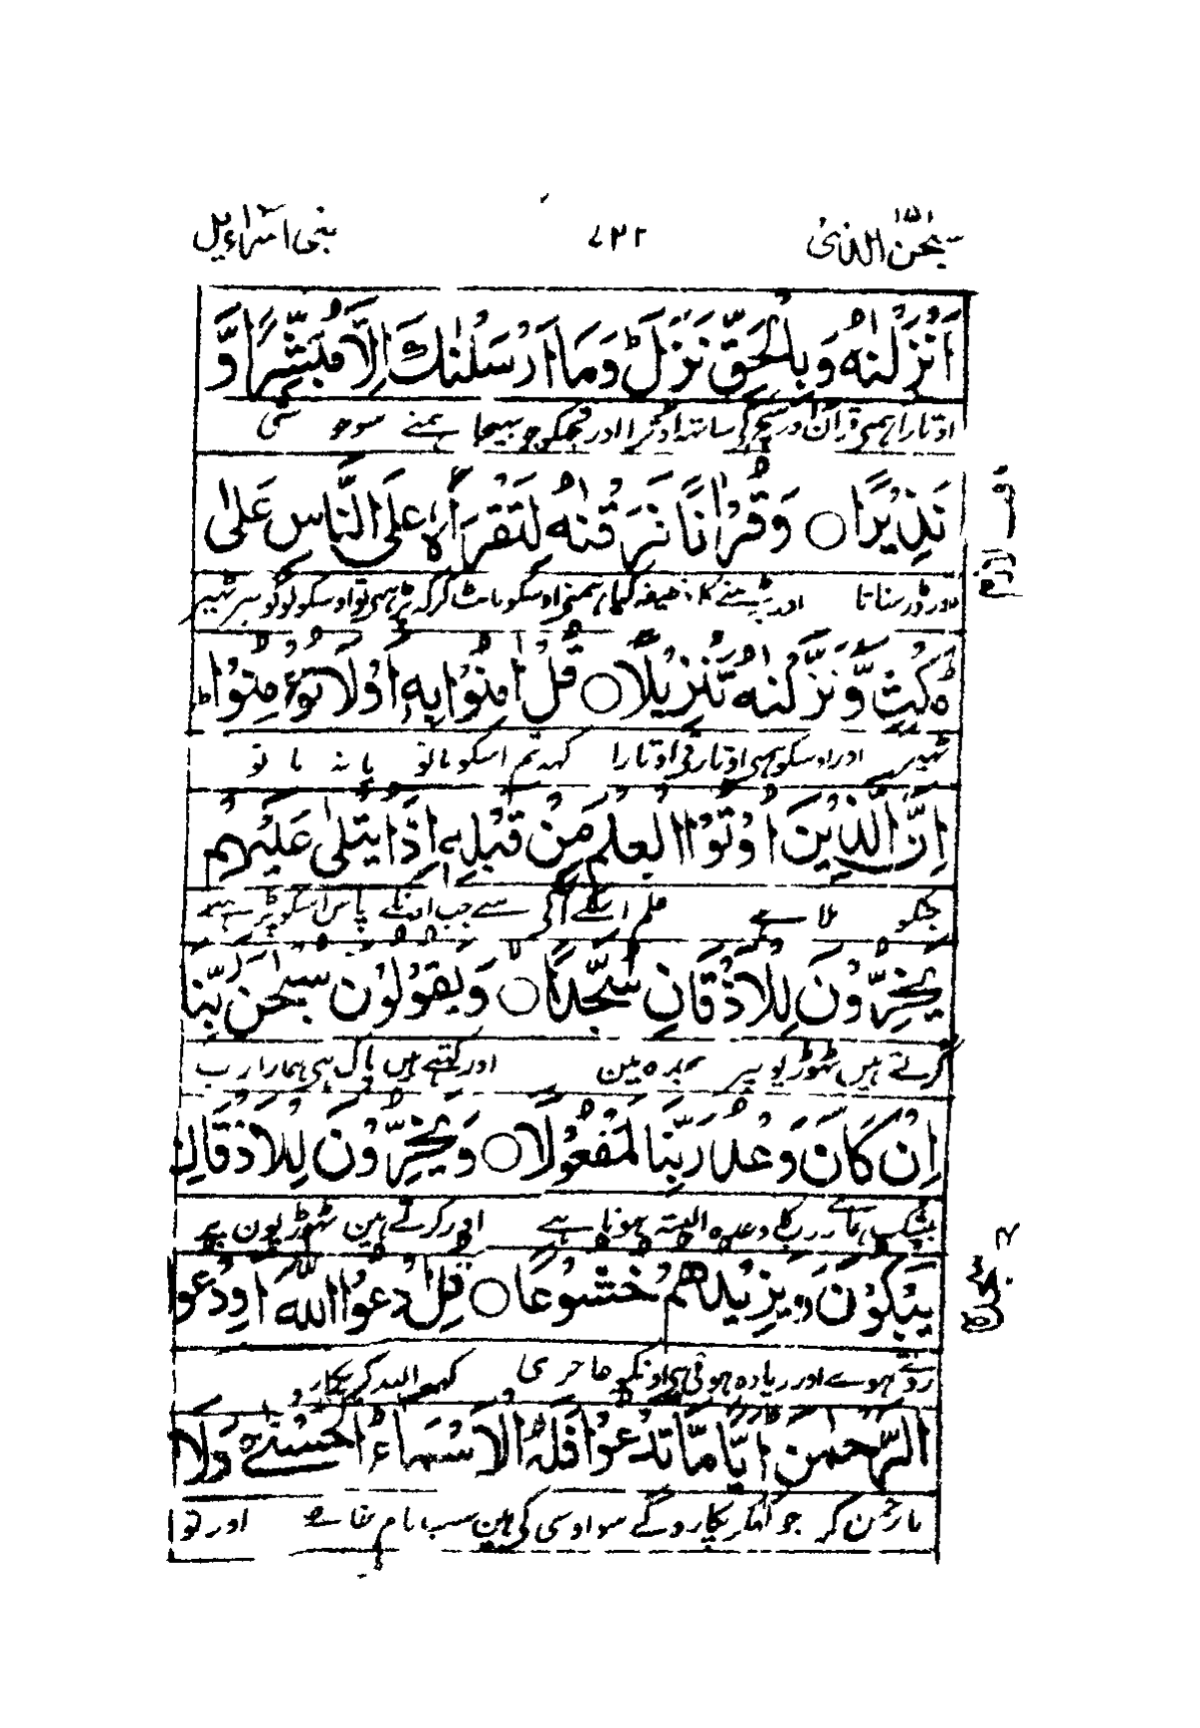 سبحٰن الذی ۷۲۲ بنی اسرآءیل
اَنْزَلْنٰهُ وَبِالْحَقِّ نَزَلَ ؕ وَمَا اَرْسَلْنٰكَ اِلَّا مُبَشِّرًا وَّ
اوتارا ہمنی قرآن اور سچ کے ساتہ اوترا اور تجہکو جو بہیجا ہمنے سو خوشی
نَذِیْرًا ○ وَقُرْاٰنًا فَرَقْنٰهُ لِتَقْرَاَهٗ عَلَی النَّاسِ عَلٰی
اور ڈر سناتا اور پڑہنے کا وظیفہ کیا ہمنی اوسکو بانٹ کر کہ پڑہی تو اوسکو لوگو پر ٹہیر
مُكْثٍ وَّنَزَّلْنٰهُ تَنْزِیْلًا ○ قُلْ اٰمِنُوْا بِهٖۤ اَوْ لَا تُؤْمِنُوْا ؕ
ٹہیر اور اوسکو ہمی اوتارتی اوتارا کہہ تم اسکو مانو یا نہ مانو
اِنَّ الَّذِیْنَ اُوْتُوا الْعِلْمَ مِنْ قَبْلِهٖۤ اِذَا یُتْلٰی عَلَیْهِمْ
جنکو ملا ہے علم اسکے آگی سے جب اونکے پاس اسکو پڑہیے
یَخِرُّوْنَ لِلْاَذْقَانِ سُجَّدًا ○ وَیَقُوْلُوْنَ سُبْحٰنَ رَبِّنَا
گرتے ہیں ٹہوڑیو پر سجدہ مین اور کہتے ہیں پاک ہی ہمارا رب
اِنْ كَانَ وَعْدُ رَبِّنَا لَمَفْعُوْلًا ○ وَیَخِرُّوْنَ لِلْاَذْقَانِ
بیشک ہمارے رب کا وعدہ البتہ ہونا ہے اور گرتے ہین ٹہوڑیون پر
یَبْكُوْنَ وَیَزِیْدُهُمْ خُشُوْعًا ○ قُلِ ادْعُوا اللّٰهَ اَوِ ادْعُوا
روتے ہوے اور زیادہ ہوتی ہی اونکو عاجزی کہہ اللہ کر پکارو
الرَّحْمٰنَ ؕ اَیًّا مَّا تَدْعُوْا فَلَهُ الْاَسْمَآءُ الْحُسْنٰی ۚ وَلَا
یا رحمن کر جو کہکر پکارو گے سو اوسی کی ہین سب نام خاصے اور تو